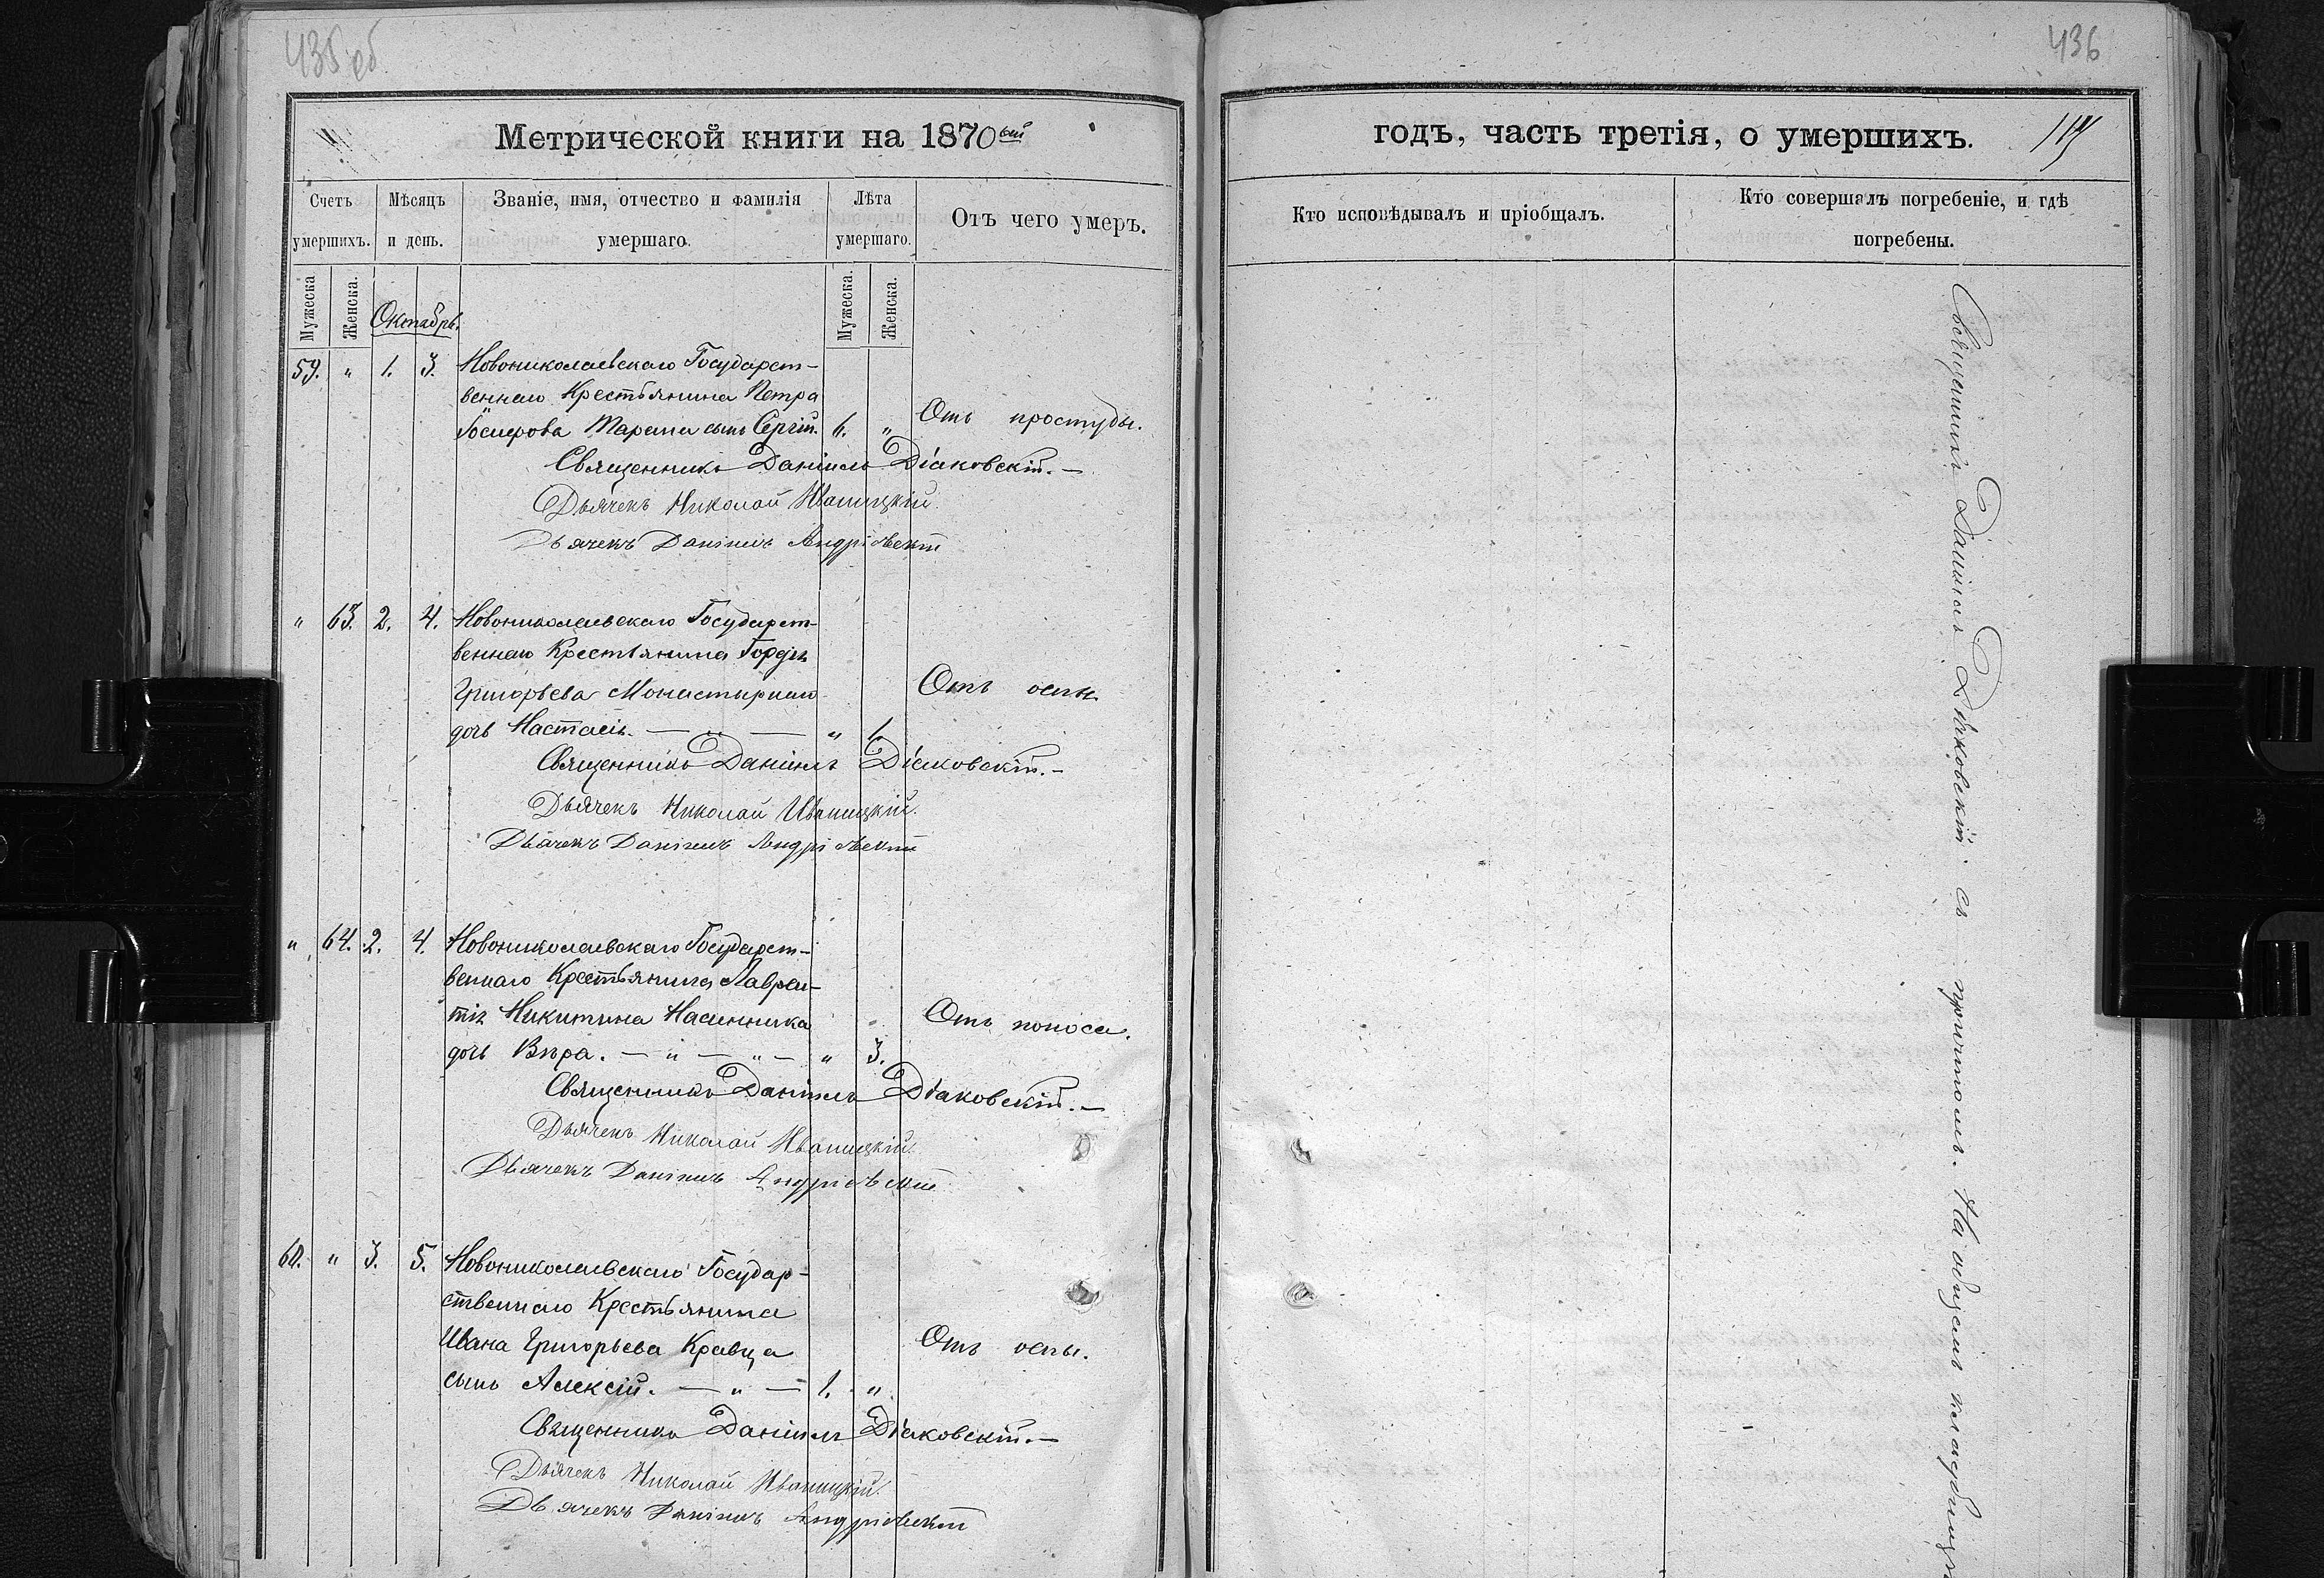 435 об
436
Метрической книги на 1870ый
годъ, часть третія, о умершихъ.
Счетъ умершихъ.
Мѣсяцъ и день.
Званіе, имя, отчество и фамилія умершаго.
Лѣта умершаго.
Отъ чего умеръ.
Кто исповѣдывалъ и пріобщалъ.
Кто совершалъ погребеніе, и гдѣ погребены.
Мужеска
Женска.
Октябрь.
Мужеска.
Женска.
59. " 1. 3. Новониколаевскаго Государст-
веннаго Крестьянина Петра
Іосифова Тарана сынъ Сергій. 6. " Отъ простуды.
Священникъ Даніилъ Діаковскій.
Дьячекъ Николай Иваницкій.
Дьячекъ Даніилъ Андріевскій
" 63. 2. 4. Новониколаевскаго Государст-
веннаго Крестьянина Гордія
Григорьева
дочь Настасія. — " — " 1. Отъ оспы.
Священникъ Даніилъ Діаковскій.
Дьячекъ Николай Иваницкій.
Дьячекъ Даніилъ Андріевскій
" 64. 2. 4. Новониколаевскаго Государст-
веннаго Крестьянина Лаврен-
тія Никитина Насинника Отъ поноса.
дочь Вѣра. — " — " — " 3.
Священникъ Даніилъ Діаковскій.
Дьячекъ Николай Иваницкій.
Дьячекъ Даніилъ Андріевскій
60. " 3. 5. Новониколаевскаго Государ-
ственнаго Крестьянина
Ивана Григорьева Кравца Отъ оспы.
сынъ Алексій. — " — 1. "
Священникъ Даніилъ Діаковскій.
Дьячекъ Николай Иваницкій.
Дьячекъ Даніилъ Андріевскій
Священникъ Даніилъ Діаковскій съ причтомъ. На общемъ кладбищѣ